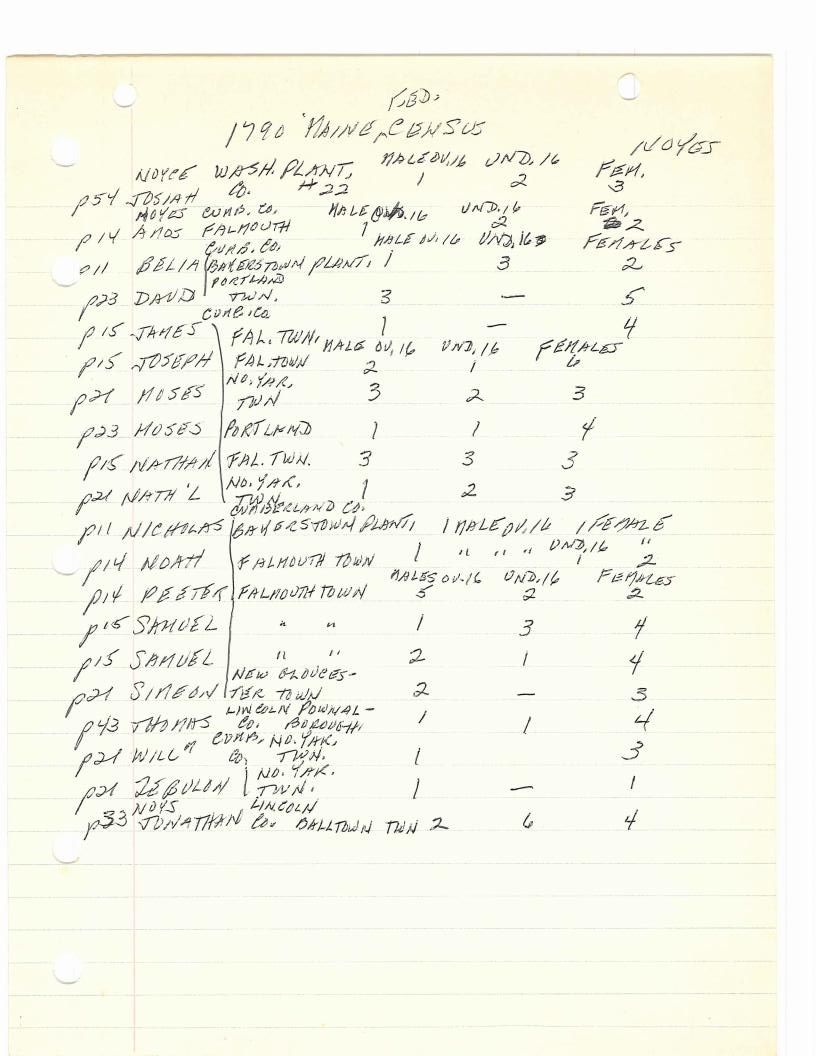 FED.
1790 MAINE CENSUS
NOYES
NOYCE WASH. PLANT, MALE OV.16 UND.16 FEM.
p54 JOSIAH CO. #22 1 2 3
NOYES CUMB. CO. MALE OV.16 UND.16 FEM.
p14 AMOS FALMOUTH 1 2 2
CUMB. CO. MALE OV.16 UND.16 FEMALES
p11 BELIA BAKERSTOWN PLANT, 1 3 2
PORTLAND
p23 DAVID TWN. 3 — 5
CUMB. CO
p15 JAMES FAL. TWN. 1 — 4
MALE OV.16 UND.16 FEMALES
p15 JOSEPH FAL. TOWN 2 1 6
NO. YAR,
p21 MOSES TWN 3 2 3
p23 MOSES PORTLAND 1 1 4
p15 NATHAN FAL. TWN. 3 3 3
NO. YAR.
p21 NATH'L TWN 1 2 3
CUMBERLAND CO.
p11 NICHOLAS BAKERSTOWN PLANT, 1 MALE OV.16 1 FEMALE
UND.16
p14 NOAH FALMOUTH TOWN 1 " " " 1 " 2
MALES OV.16 UND.16 FEMALES
p14 PEETER FALMOUTH TOWN 5 2 2
p15 SAMUEL " " 1 3 4
p15 SAMUEL " " 2 1 4
NEW GLOUCES-
p21 SIMEON TER TOWN 2 — 3
LINCOLN POWNAL-
p43 THOMAS CO. BOROUGH, 1 1 4
CUMB. NO. YAR,
p21 WILL'M CO. TWN. 1 3
NO. YAR.
p21 ZEBULON TWN. 1 — 1
NOYS LINCOLN
p33 JONATHAN CO. BALLTOWN TWN 2 6 4